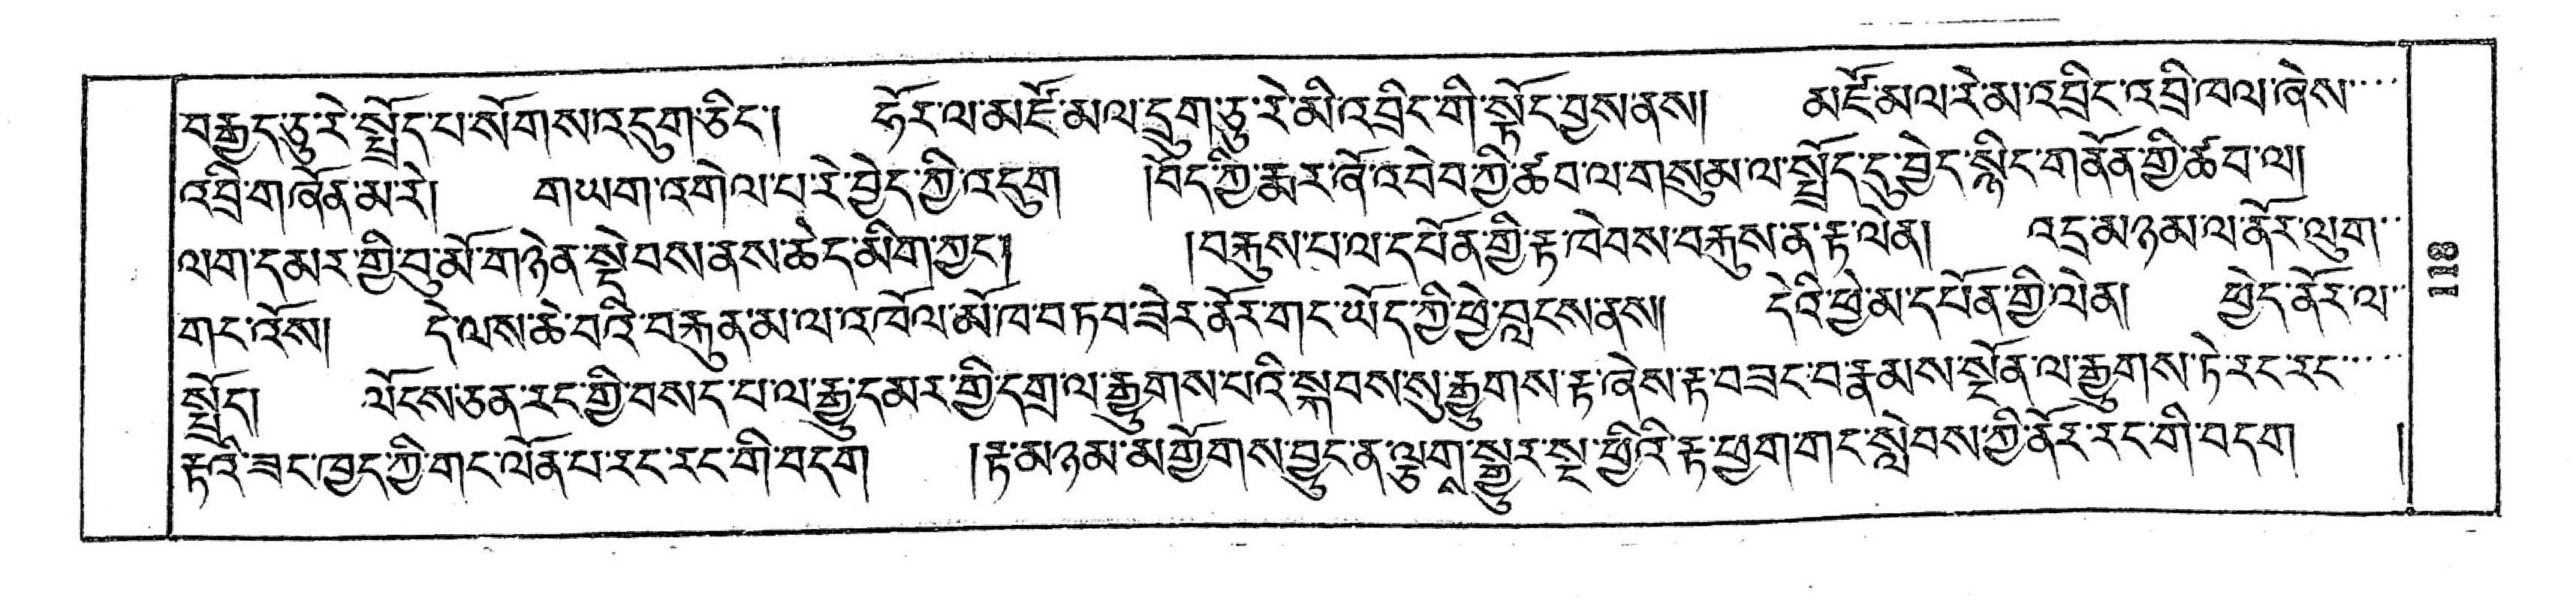 བརྒྱད་ཅུ་རེ་སྤྲོད་པ་སོགས་འདུག་ཅིང་། ཧོར་ལ་མཛོ་མལ་དྲུག་ཅུ་རེ་མི་འབྲིང་གི་སྟོང་བྱས་ནས། མཛོ་མལ་རེ་མ་འབྲིང་འབྲི་ཁལ་ཞེས་
འབྲི་གཞོན་མ་རེ། གཡག་འགེལ་པ་རེ་བྱེད་ཀྱི་འདུག །བོད་ཀྱི་རྨར་ཞོ་འབེབ་ཀྱི་ཚབ་ལ་གསུམ་ལ་སྤྲོད་དུ་བྱེད་སྙིང་གནོན་གྱི་ཚབ་ལ།
ལག་དམར་གྱི་བུ་མོ་གཉེན་སྡེབས་ནས་ཆེད་མིག་ཀྱང་། །བརྐུས་པ་ལ་དཔོན་གྱི་རྟ་ཁེབས་བརྐུས་ན་རྟ་ལེན། འདྲ་མཉམ་ལ་ནོར་ལུག་
གང་འོས། དེ་ལས་ཆེ་བའི་བརྐུན་མ་ལ་འཁོལ་མོ་ཁ་བཏབ་ཟེར་ནོར་གང་ཡོད་ཀྱི་ཕྱེ་བླངས་ནས། དེའི་ཕྱེ་མ་དཔོན་གྱི་ལེན། ཕྱེད་ནོར་ལ་
སྤྲོད། ལོངས་ཅན་རང་གྱི་བསད་པ་ལ་རྒྱུ་དམར་གྱི་དགྲ་ལ་རྒྱུགས་པའི་སྐབས་སུ་རྒྱུགས་རྟ་ཞེས་རྟ་བཟང་བ་རྣམས་སྔོན་ལ་རྒྱུགས་ཏེ་རང་རང་
རྟའི་ཟང་ཁྱད་ཀྱི་གང་ལོན་པ་རང་རང་གི་བདག །རྟ་མཉམ་མ་གྱོགས་བྱུང་ན་ལྟུག སྒྱུར་སྔ་ཕྱིའི་རྟ་ཕྱག་གང་སླེབས་ཀྱི་ནོར་རང་གི་བདག །
118